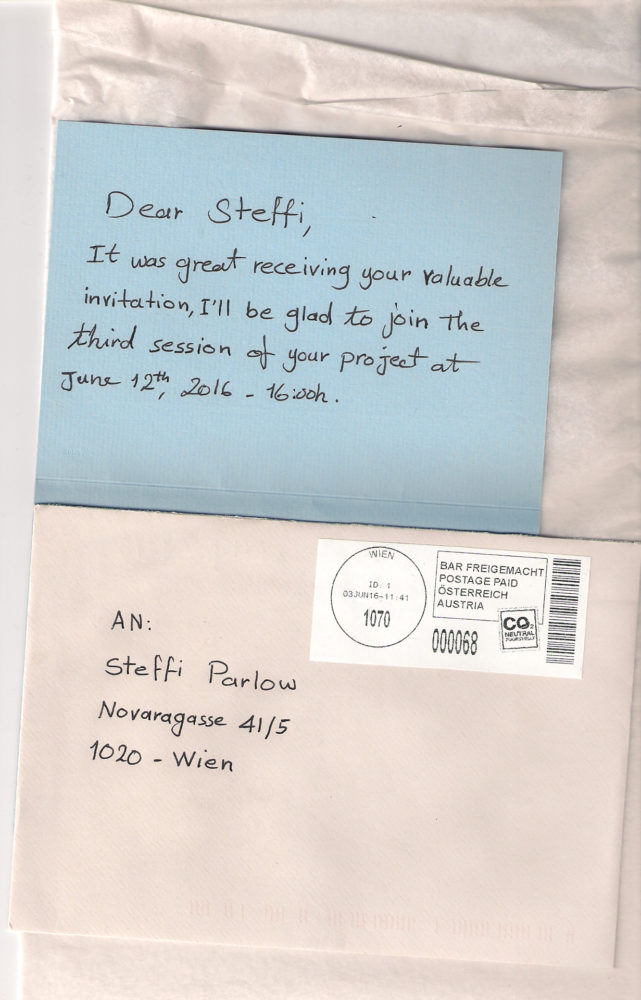 Dear Steffi,
It was great receiving your valuable
invitation, I'll be glad to join the
third session of your project at
June 12th, 2016 - 16:00h.
WIEN
ID: 1
03JUN16-11:41
1070
BAR FREIGEMACHT
POSTAGE PAID
ÖSTERREICH
AUSTRIA
000068
CO2
NEUTRAL
AN:
Steffi Parlow
Novaragasse 41/5
1020 - Wien